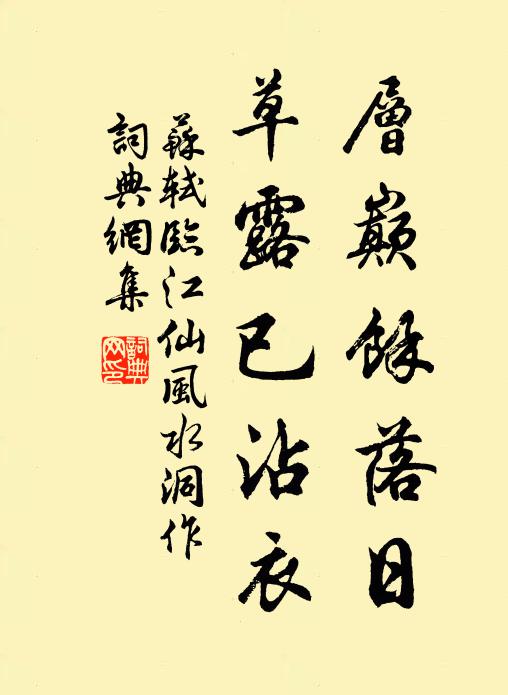 層巔餘落日
草露已沾衣
蘇軾臨江仙風水洞作
詞典網集
詞典
网印